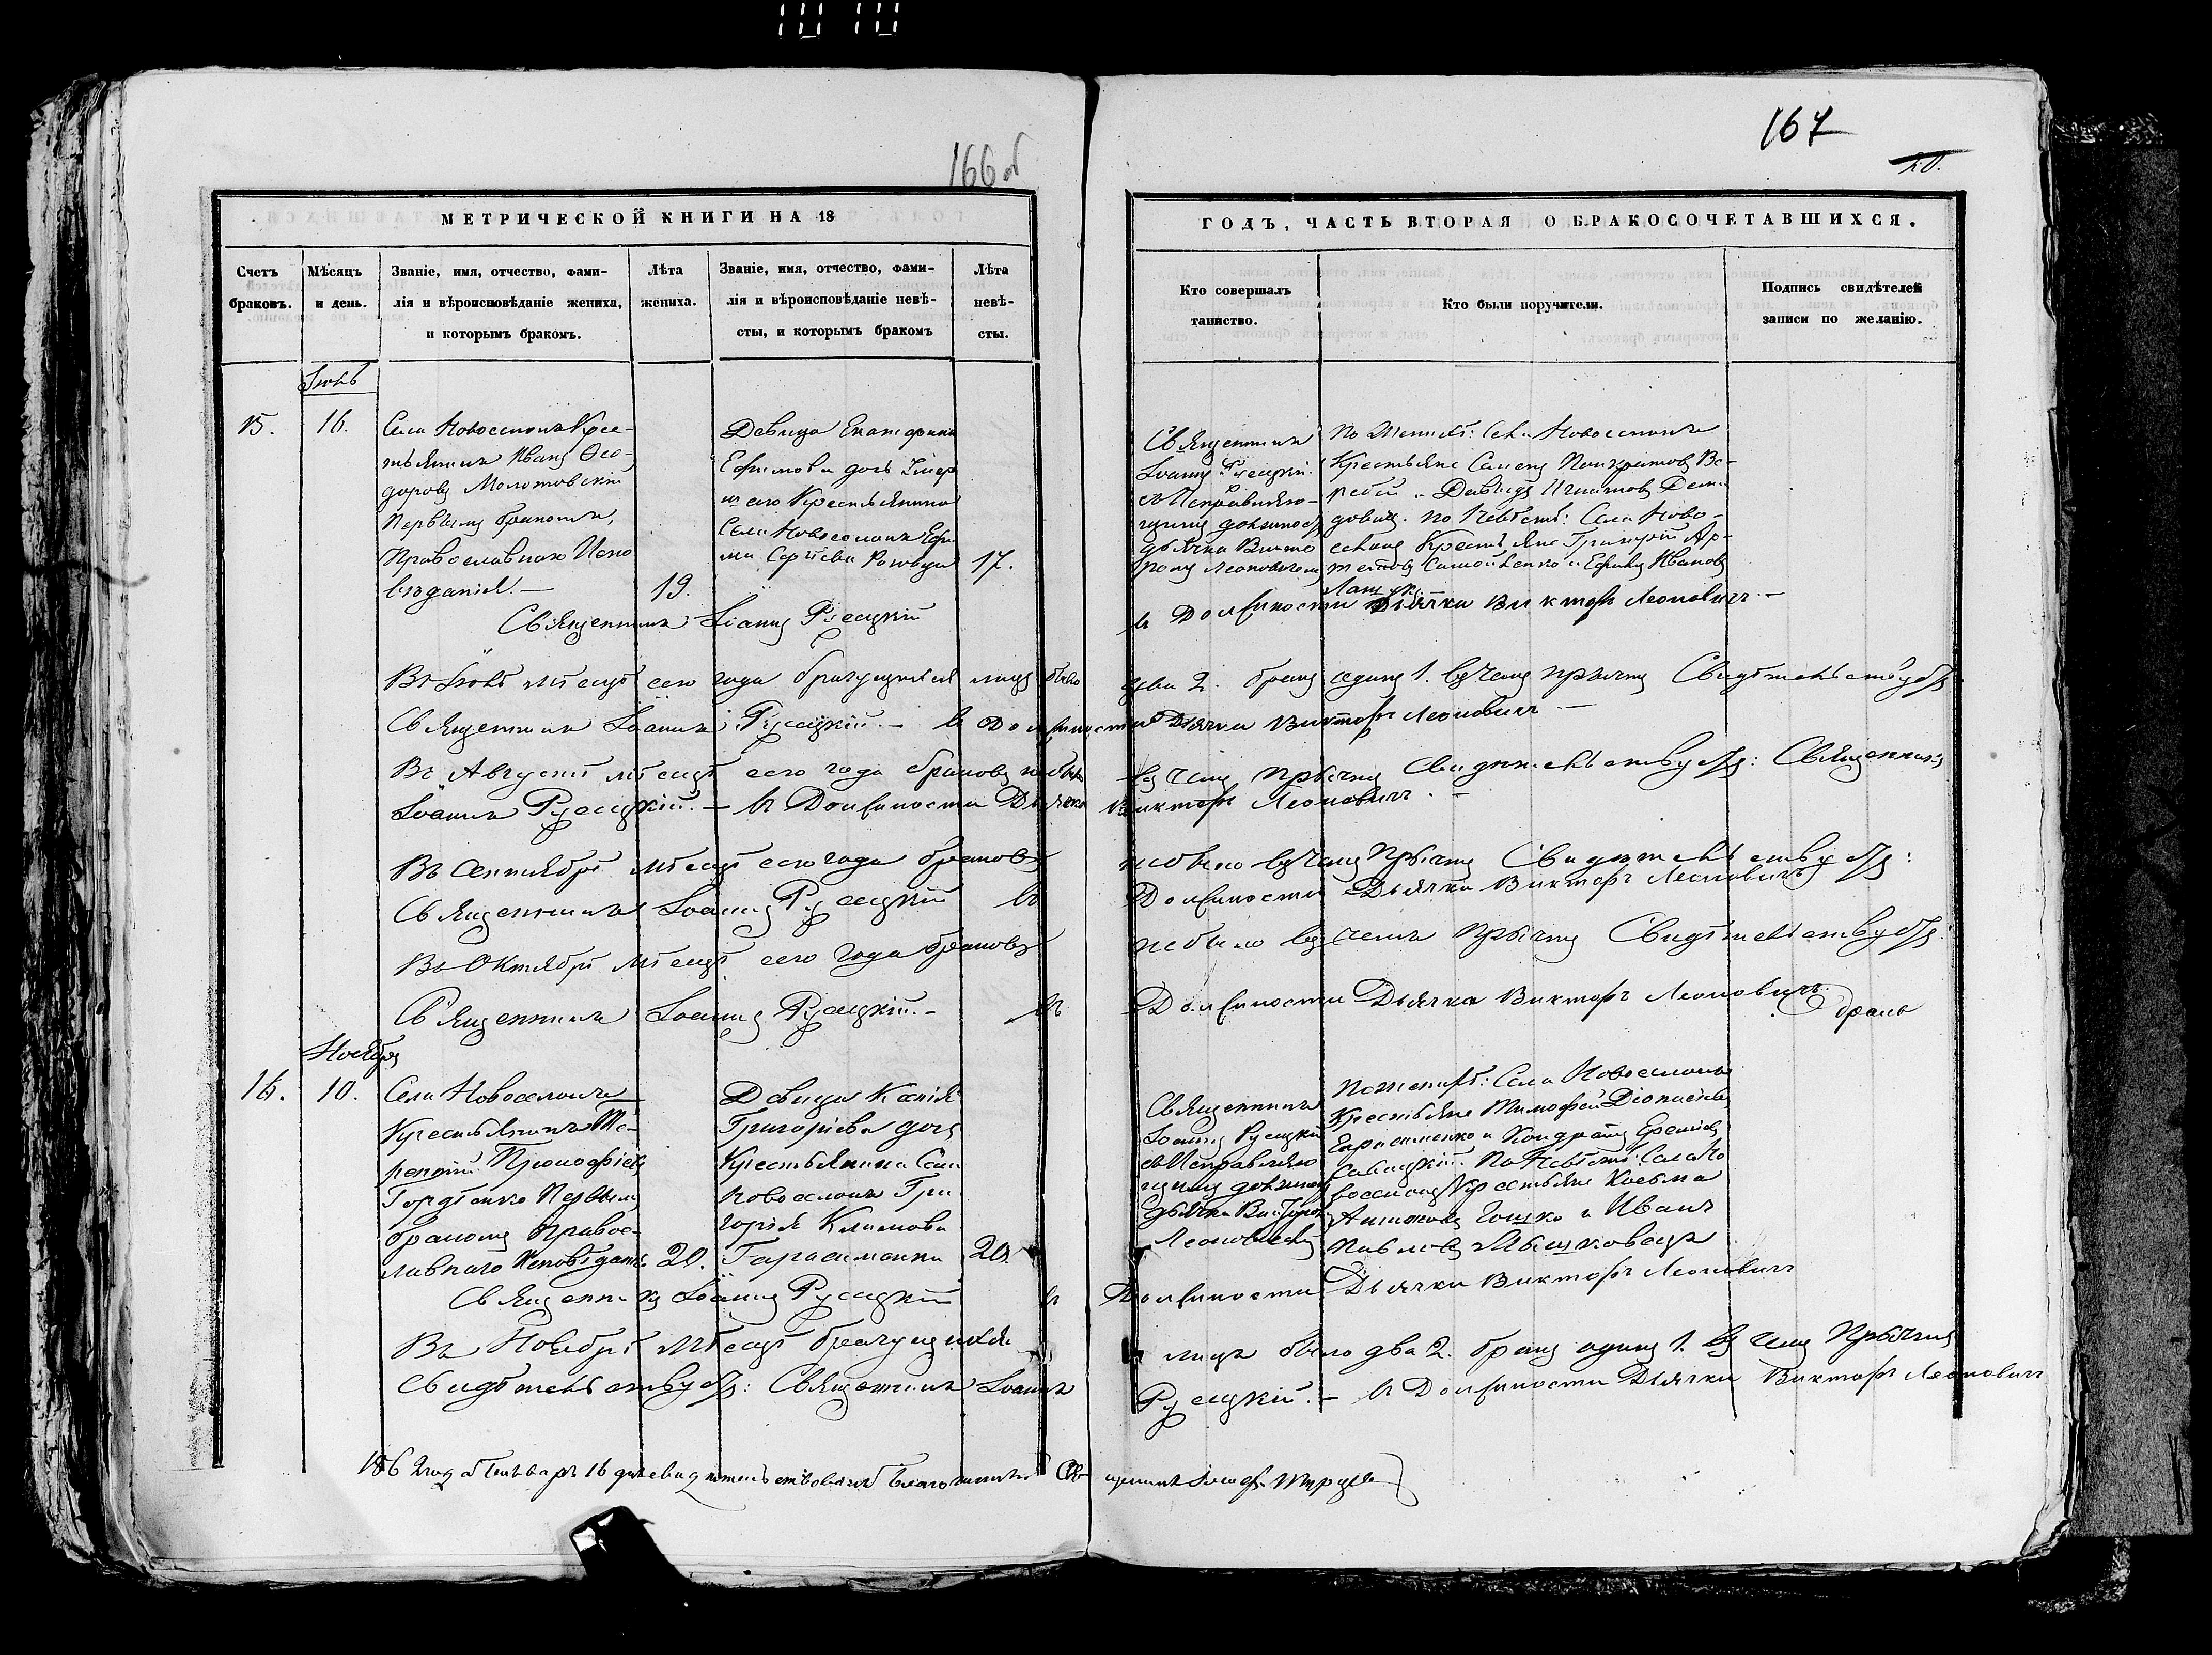 166 об
167
20.
МЕТРИЧЕСКОЙ КНИГИ НА 18
ГОДЪ, ЧАСТЬ ВТОРАЯ О БРАКОСОЧЕТАВШИХСЯ.
Счетъ
браковъ.
Мѣсяцъ
и день.
Званіе, имя, отчество, фами-
лія и вѣроисповѣданіе жениха,
и которымъ бракомъ.
Лѣта
жениха.
Званіе, имя, отчество, фами-
лія и вѣроисповѣданіе невѣ-
сты, и которымъ бракомъ
Лѣта
невѣ-
сты.
Кто совершалъ
таинство.
Кто были поручители.
Подпись свидѣтелей
записи по желанію.
15.
16.
Села Новоселокъ Кре-
стьянинъ Иванъ Фео-
доровъ
Первымъ бракомъ,
Православнаго Испо
вѣданія. —
19.
Девица Екатерина
Ефимова дочь
Крестьянина
Села Новоселокъ Ефи
ма
17.
Священникъ
Іоаннъ Русецкій
съ Исправляю-
щимъ должность
дьячка Викто
ромъ Леоновичемъ
По Женихѣ: Села Новоселокъ
Крестьяне Семенъ Панкратовъ
Давидъ Игнатовъ
По Невѣстѣ: Села Ново-
Крестьяне Григорій Ар-
Ефимъ Ивановъ
Священникъ Іоаннъ Русецкій
въ Должности Дьячка Викторъ Леоновичъ. —
мѣсяцѣ сего года брачущихся лицъ было два 2. бракъ одинъ 1. въ чемъ причтъ Свидѣтельствуетъ
Священникъ Іоаннъ Русецкій. — въ Должности Дьячка Викторъ Леоновичъ —
Въ Августѣ мѣсяцѣ сего года браковъ небыло въ чемъ причтъ Свидѣтельствуетъ: Священникъ
Іоаннъ Русецкій. — въ Должности Дьячка Викторъ Леоновичъ. —
Въ Сентябрѣ мѣсяцѣ сего года браковъ небыло въ чемъ причтъ Свидѣтельствуетъ:
Священникъ Іоаннъ Русецкій въ Должности Дьячка Викторъ Леоновичъ
Въ Октябрѣ мѣсяцѣ сего года браковъ небыло въ чемъ причтъ Свидѣтельствуетъ:
Священникъ Іоаннъ Русецкій. — въ Должности Дьячка Викторъ Леоновичъ.
Ноябрь
16.
10.
Села Новоселокъ
Крестьянинъ Те-
рентій Прокофіевъ
Гордѣенко Первымъ
бракомъ Правос-
лавнаго Исповѣданія
20.
Девица Ксенія
Григорьева дочь
Крестьянина Села
Новоселокъ Гри
горія Климова
Гарасименки
20.
Священникъ
Іоаннъ Русецкій
съ Исправляю
щимъ должность
дьячка Викторомъ
Леоновичемъ
По Женихѣ: Села Новоселокъ
Крестьяне Тимофей Діонисіевъ
Герасименко и Кондратъ
Савицкій. По Невѣстѣ: Села Но
воселокъ Крестьяне Косьма
и Иванъ
Павловъ Мышковецъ
Священникъ Іоаннъ Русецкій въ Должности Дьячка Викторъ Леоновичъ
Въ Ноябрѣ мѣсяцѣ брачущихся лицъ было два 2. бракъ одинъ 1. въ чемъ Причтъ
Свидѣтельствуетъ: Священникъ Іоаннъ Русецкій. — въ Должности Дьячка Викторъ Леоновичъ
1862 года Генваря 16 дня свидѣтельствовалъ Благочинный Священникъ